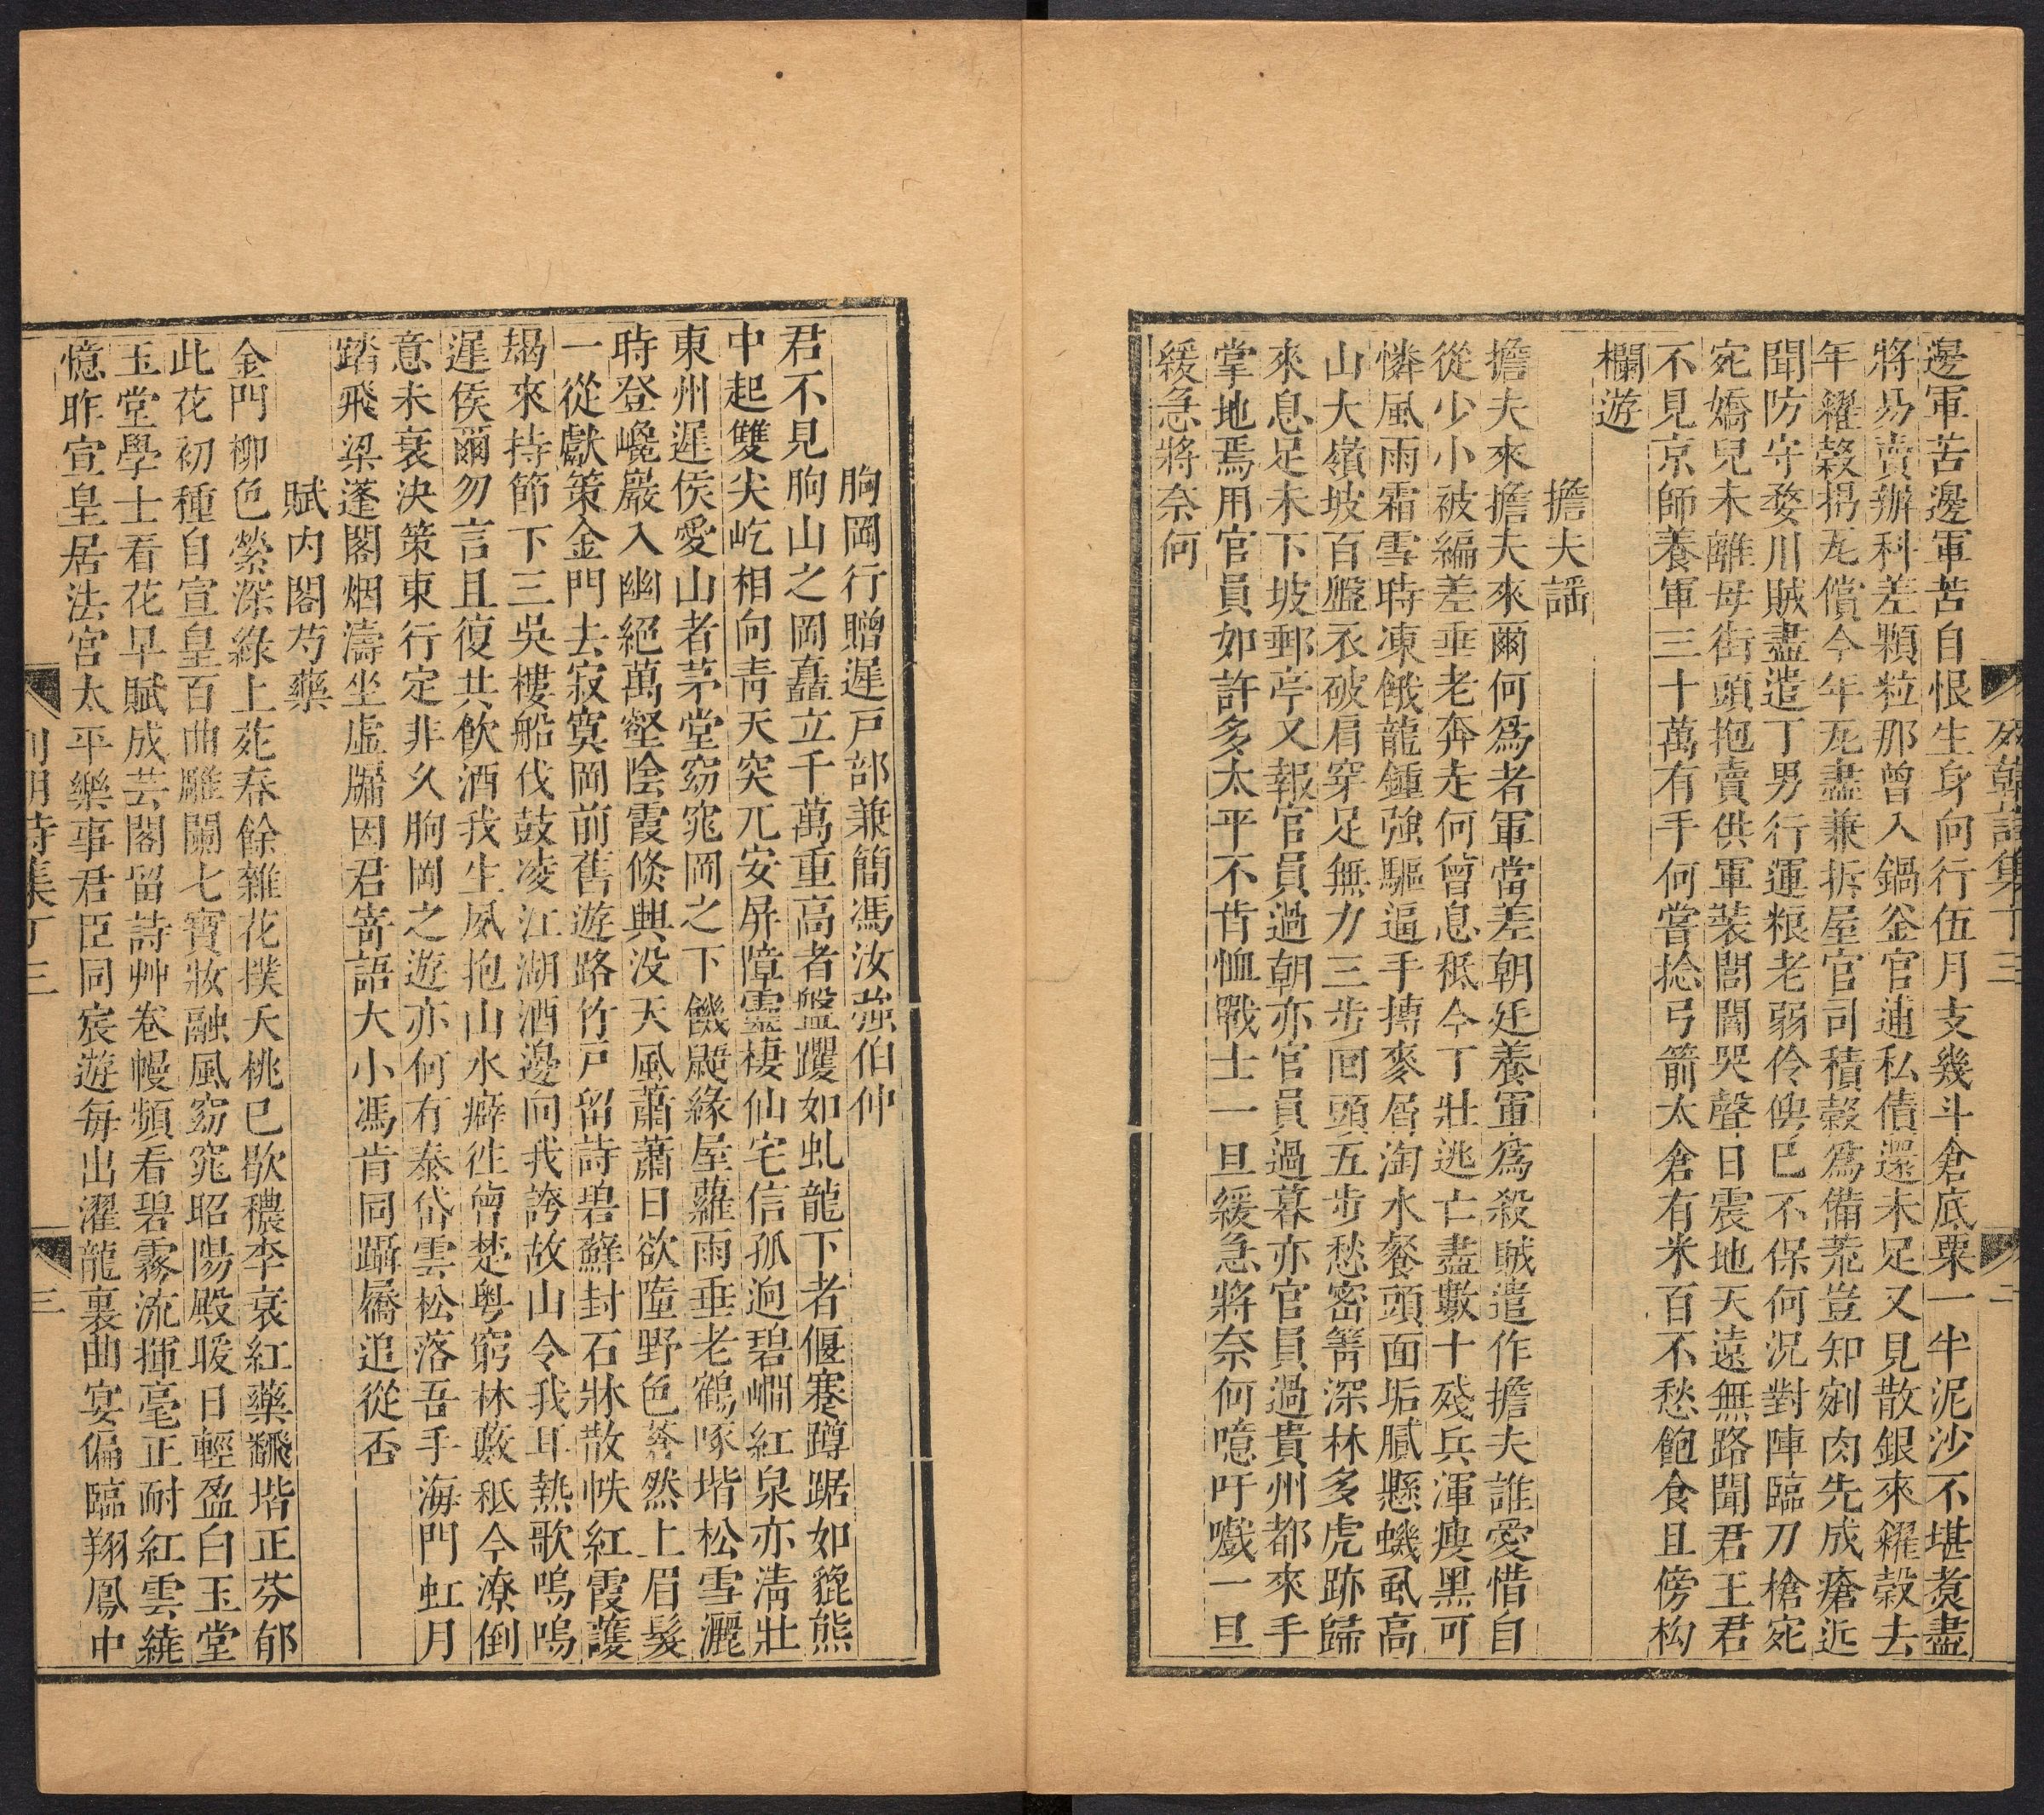 邊軍苦邊軍苦自恨生身向行伍月支幾斗倉底粟一半泥沙不堪煑盡
將易賣辦科差顆粒那曾入鍋釡官逋私債還未足又見散銀來糴榖去
年糴榖揭瓦償今年瓦盡兼拆屋官司積榖爲備荒豈知剜肉先成瘡近
聞防守婺川賊盡遣丁男行運粮老弱伶俜已不保何況對陣臨刀槍宛
宛嬌兒未離母街頭抱賣供軍裝閭閻哭聲日震地天遠無路聞君王君
不見京師養軍三十萬有手何嘗捻弓箭太倉有米百不愁飽食且傍构
欄遊
擔夫謡
擔夫來擔夫來爾何爲者軍當差朝廷養軍爲殺賊遣作擔夫誰愛惜自
從少小被編差垂老奔走何曾息秪今丁壯逃亡盡數十殘兵渾瘦黑可
憐風雨霜雪時凍餓龍鍾強驅逼手摶麥屑淘水餐頭面垢膩懸蟣虱高
山大嶺坡百盤衣破肩穿足無力三步回頭五步愁密箐深林多虎跡歸
來息足未下坡郵亭又報官員過朝亦官員過暮亦官員過貴州都來手
掌地焉用官員如許多太平不肯恤戰士一旦緩急將奈何噫吁嚱一旦
緩急將奈何
胊岡行贈遲戸部兼簡馮汝強伯仲
君不見胊山之岡矗立千萬重高者盤躩如虬龍下者偃蹇蹲踞如羆熊
中起雙尖屹相向靑天突兀安屏障靈棲仙宅信孤迥碧㵎紅泉亦淸壯
東州遲侯愛山者茅堂窈窕岡之下饑鼯緣屋蘿雨垂老鶴啄堦松雪灑
時登巉巖入幽絕萬壑陰霞倐興没天風蕭蕭日欲墮野色蒼然上眉髮
一從獻策金門去寂寞岡前舊遊路竹戸留詩碧蘚封石牀散帙紅霞護
朅來持節下三吳樓船伐鼓凌江湖酒邊向我誇故山令我耳熱歌嗚嗚
遲侯爾勿言且復共飮酒我生夙抱山水癖徃曾楚粤窮林藪秪今潦倒
意未衰決策東行定非久胊岡之遊亦何有泰岱雲松落吾手海門虹月
踏飛梁蓬閣烟濤坐虛牖因君寄語大小馮肯同躡屩追從否
賦内閣芍藥
金門柳色縈深綠上苑春餘雜花撲夭桃已歇穠李衰紅藥飜堦正芬郁
此花初種自宣皇百曲雕闌七寶妝融風窈窕昭陽殿暖日輕盈白玉堂
玉堂學士看花早賦成芸閣留詩艸卷幔頻看碧霧流揮毫正耐紅雲繞
憶昨宣皇居法宫太平樂事君臣同宸遊每出濯龍裏曲宴偏臨翔鳳中